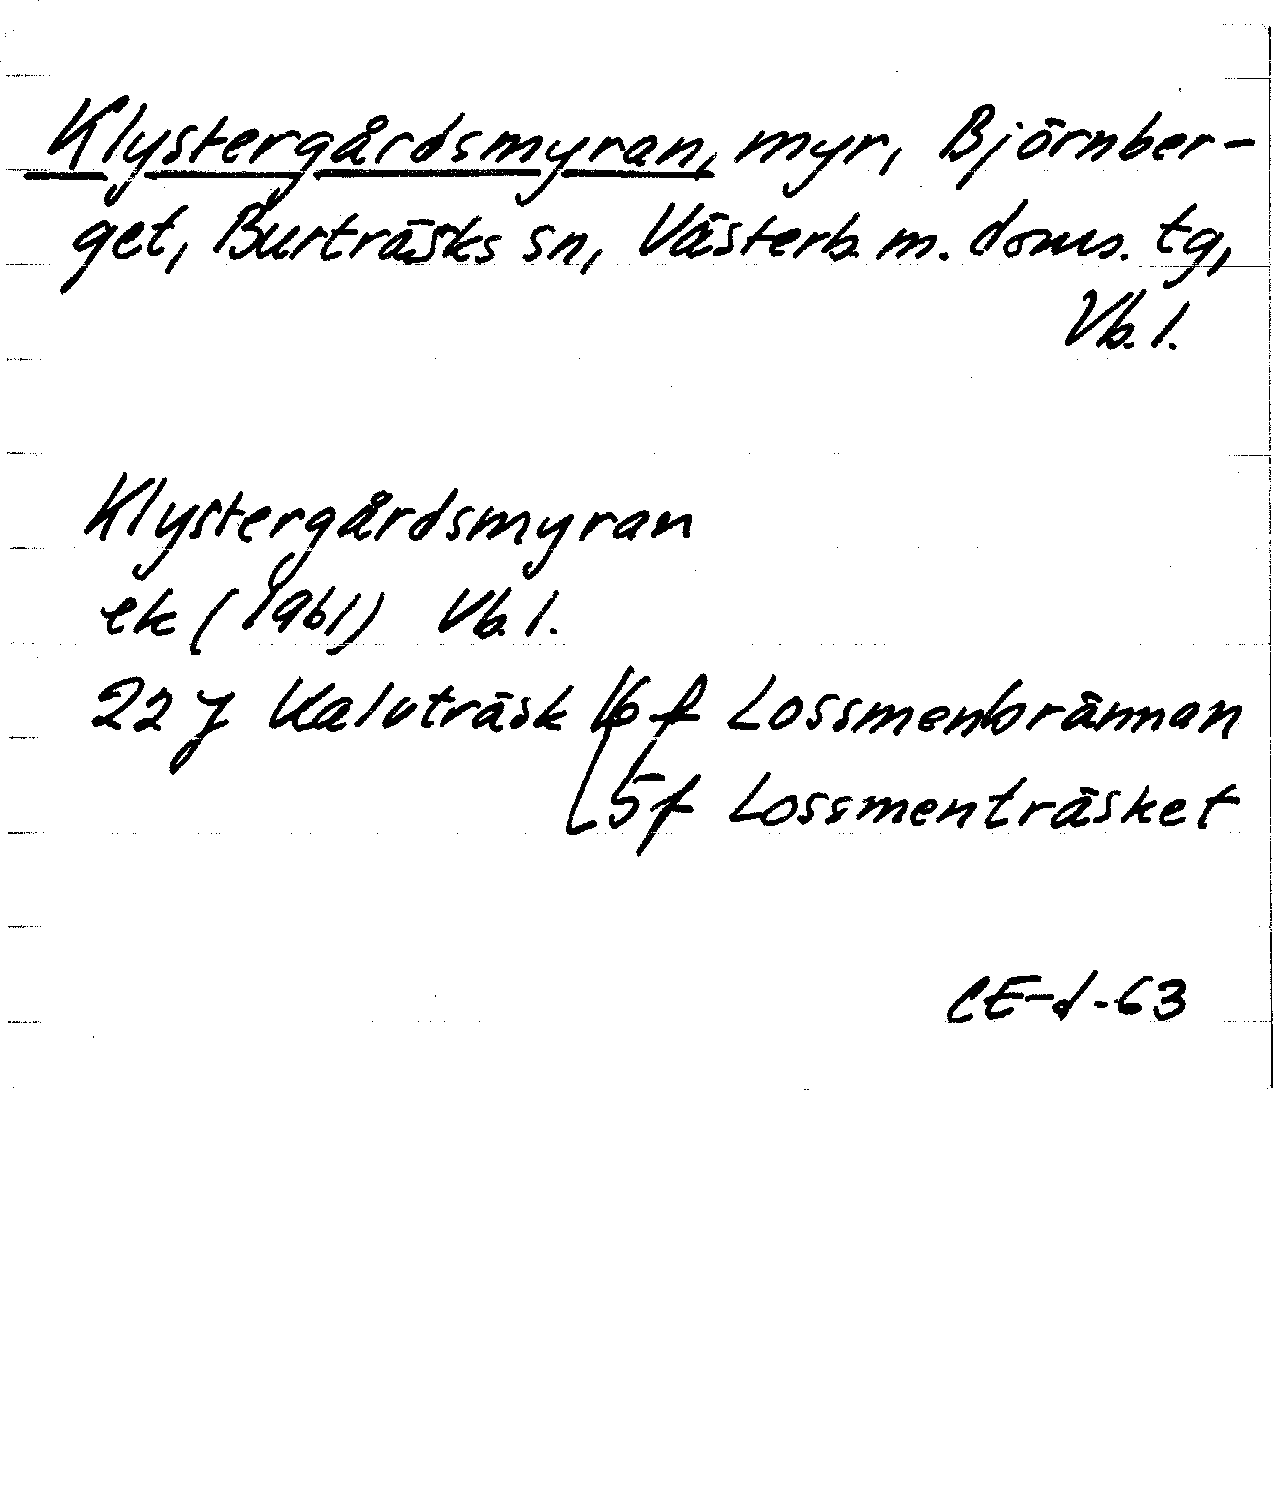 Klystergårdsmyran, myr, Björnber-
get, Burträsks sn, Västerb. m. doms. tg,
Vb. l.
Klystergårdsmyran
ek (1961) Vb. l.
22 J Kalvträsk 6 f Lossmenbrännan
5 f Lossmenträsket
CE-d-63